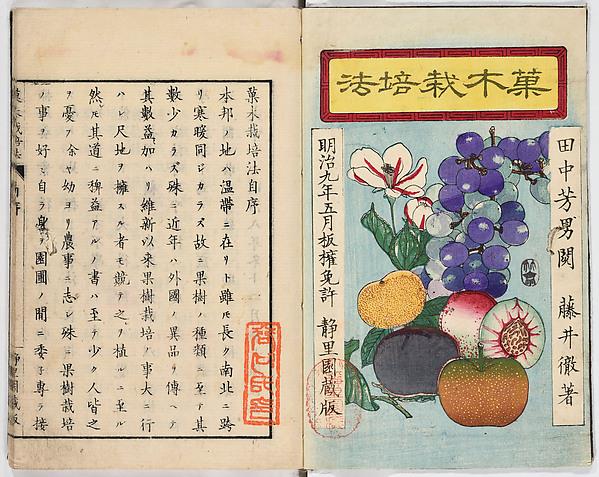 菓木栽培法
田中芳男閲　藤井徹著
明治九年五月板権免許　静里園蔵版
菓木栽培法自序
本邦ノ地ハ温帶ニ在リト雖ㇳモ長ク南北ニ跨
リ寒暖同ジカラズ故ニ果樹ノ種類ニ至テ其
數少カラズ殊ニ近年ハ外國ノ異品ヲ傳ヘテ
其數益加ハリ維新以来果樹栽培ノ事大ニ行
ハレ尺地ヲ擁スル者モ競テ之ヲ植ルニ至ル
然ㇳモ其道ニ稗益アルノ書ハ至テ少ク人皆之
ヲ憂フ余ヤ幼ヨリ農事ニ志シ殊ニ果樹栽培
ノ事ヲ好ミ自ラ身ヲ園圃ノ間ニ委子専ラ接
菓木栽培法
静里園蔵版